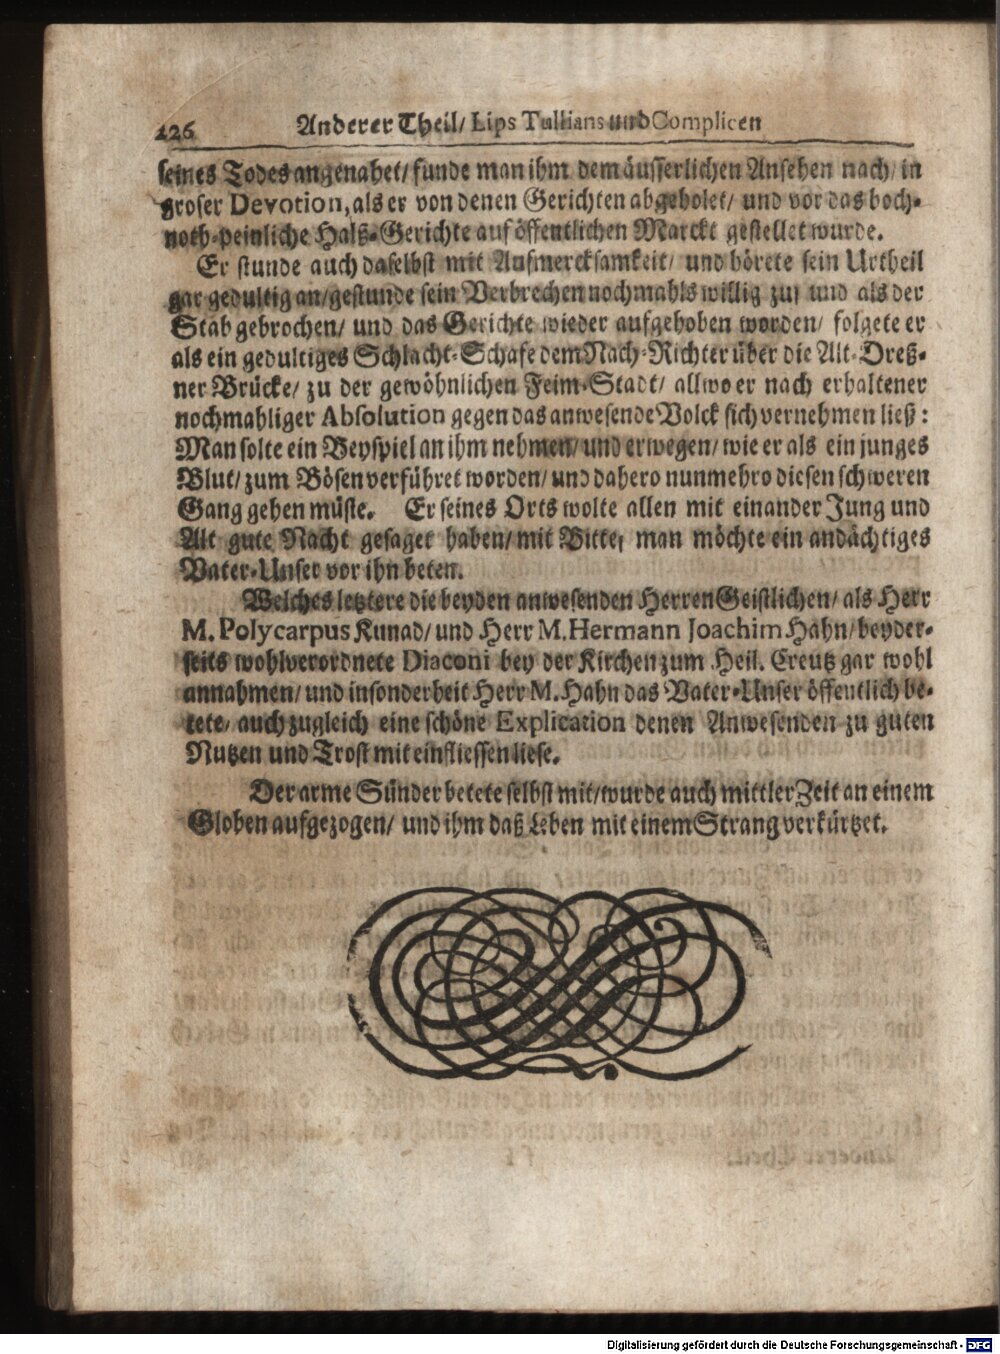 226 Anderer Theil/ Lips Tullians und Complicen
seines Todes angenahet/ funde man ihm dem äusserlichen Ansehen nach/ in
groser Devotion, als er von denen Gerichten abgeholet/ und vor das hoch-
noth-peinliche Halß-Gerichte auf öffentlichen Marckt gestellet wurde.
Er stunde auch daselbst mit Aufmercksamkeit/ und hörete sein Urtheil
gar gedultig an/ gestunde sein Verbrechen nochmahls willig zu/ und als der
Stab gebrochen/ und das Gerichte wieder aufgehoben worden/ folgete er
als ein gedultiges Schlacht-Schafe dem Nach-Richter über die Alt-Dreß-
ner Brücke/ zu der gewöhnlichen Feim-Stadt/ allwo er nach erhaltener
nochmahliger Absolution gegen das anwesende Volck sich vernehmen ließ:
Man solte ein Beyspiel an ihm nehmen/ und erwegen/ wie er als ein junges
Blut/ zum Bösen verführet worden/ und dahero nunmehro diesen schweren
Gang gehen müste. Er seines Orts wolte allen mit einander Jung und
Alt gute Nacht gesaget haben/ mit Bitte, man möchte ein andächtiges
Vater-Unser vor ihn beten.
Welches letztere die beyden anwesenden Herren Geistlichen/ als Herr
M. Polycarpus Kunad/ und Herr M. Hermann Joachim Hahn/ beyder-
seits wohlverordnete Diaconi bey der Kirchen zum Heil. Creutz gar wohl
annahmen/ und insonderheit Herr M. Hahn das Vater-Unser öffentlich be-
tete/ auch zugleich eine schöne Explication denen Anwesenden zu guten
Nutzen und Trost mit einfliessen liese.
Der arme Sünder betete selbst mit/ wurde auch mittler Zeit an einem
Globen aufgezogen/ und ihm daß Leben mit einem Strang verkürtzet.
Digitalisierung gefördert durch die Deutsche Forschungsgemeinschaft - DFG